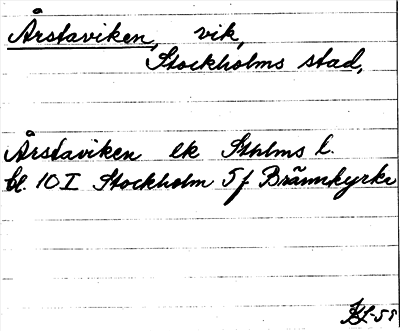 Årstaviken, vik,
Stockholms stad,
Årstaviken ek Sthlms l.
bl. 10 I Stockholm 5 f Brännkyrka